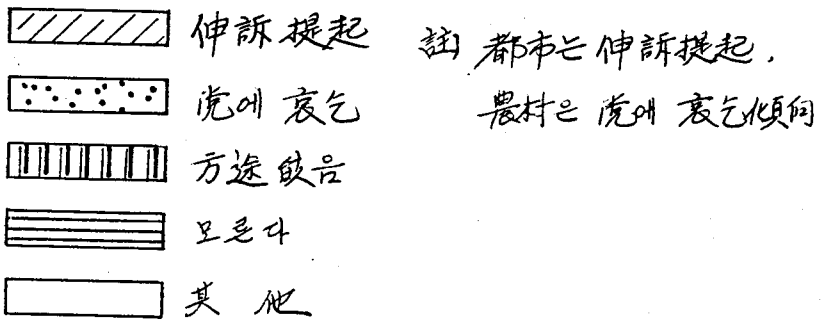 伸訴提起
党에 哀乞
方途 없음
모른다
其他
註) 都市는 伸訴提起,
農村은 党에 哀乞傾向